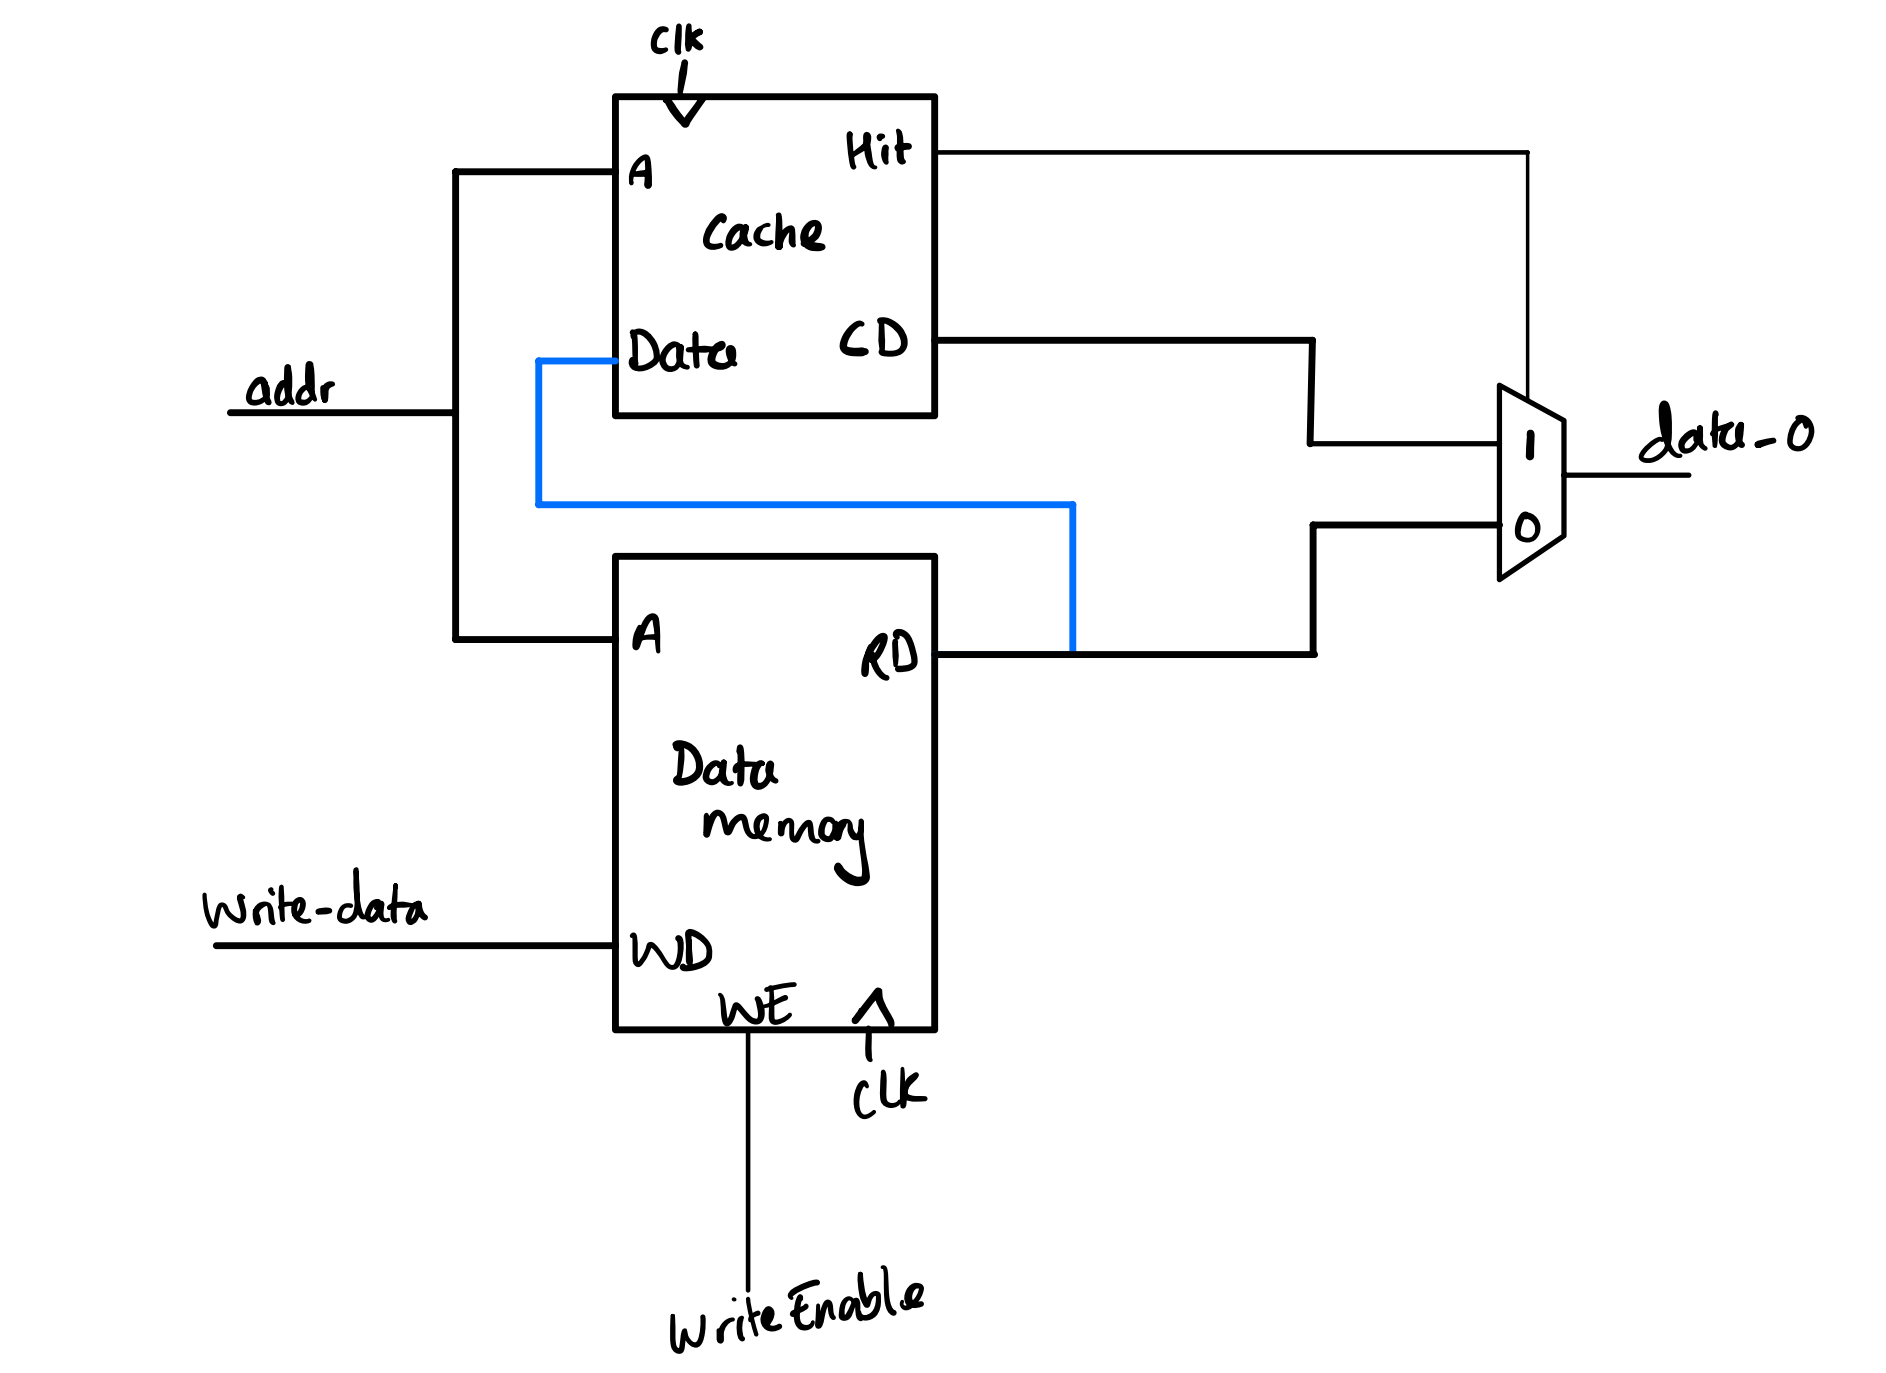 Clk
A
Hit
Cache
Data
CD
addr
data_0
1
0
A
RD
Data
memory
Write-data
WD
WE
CLK
WriteEnable